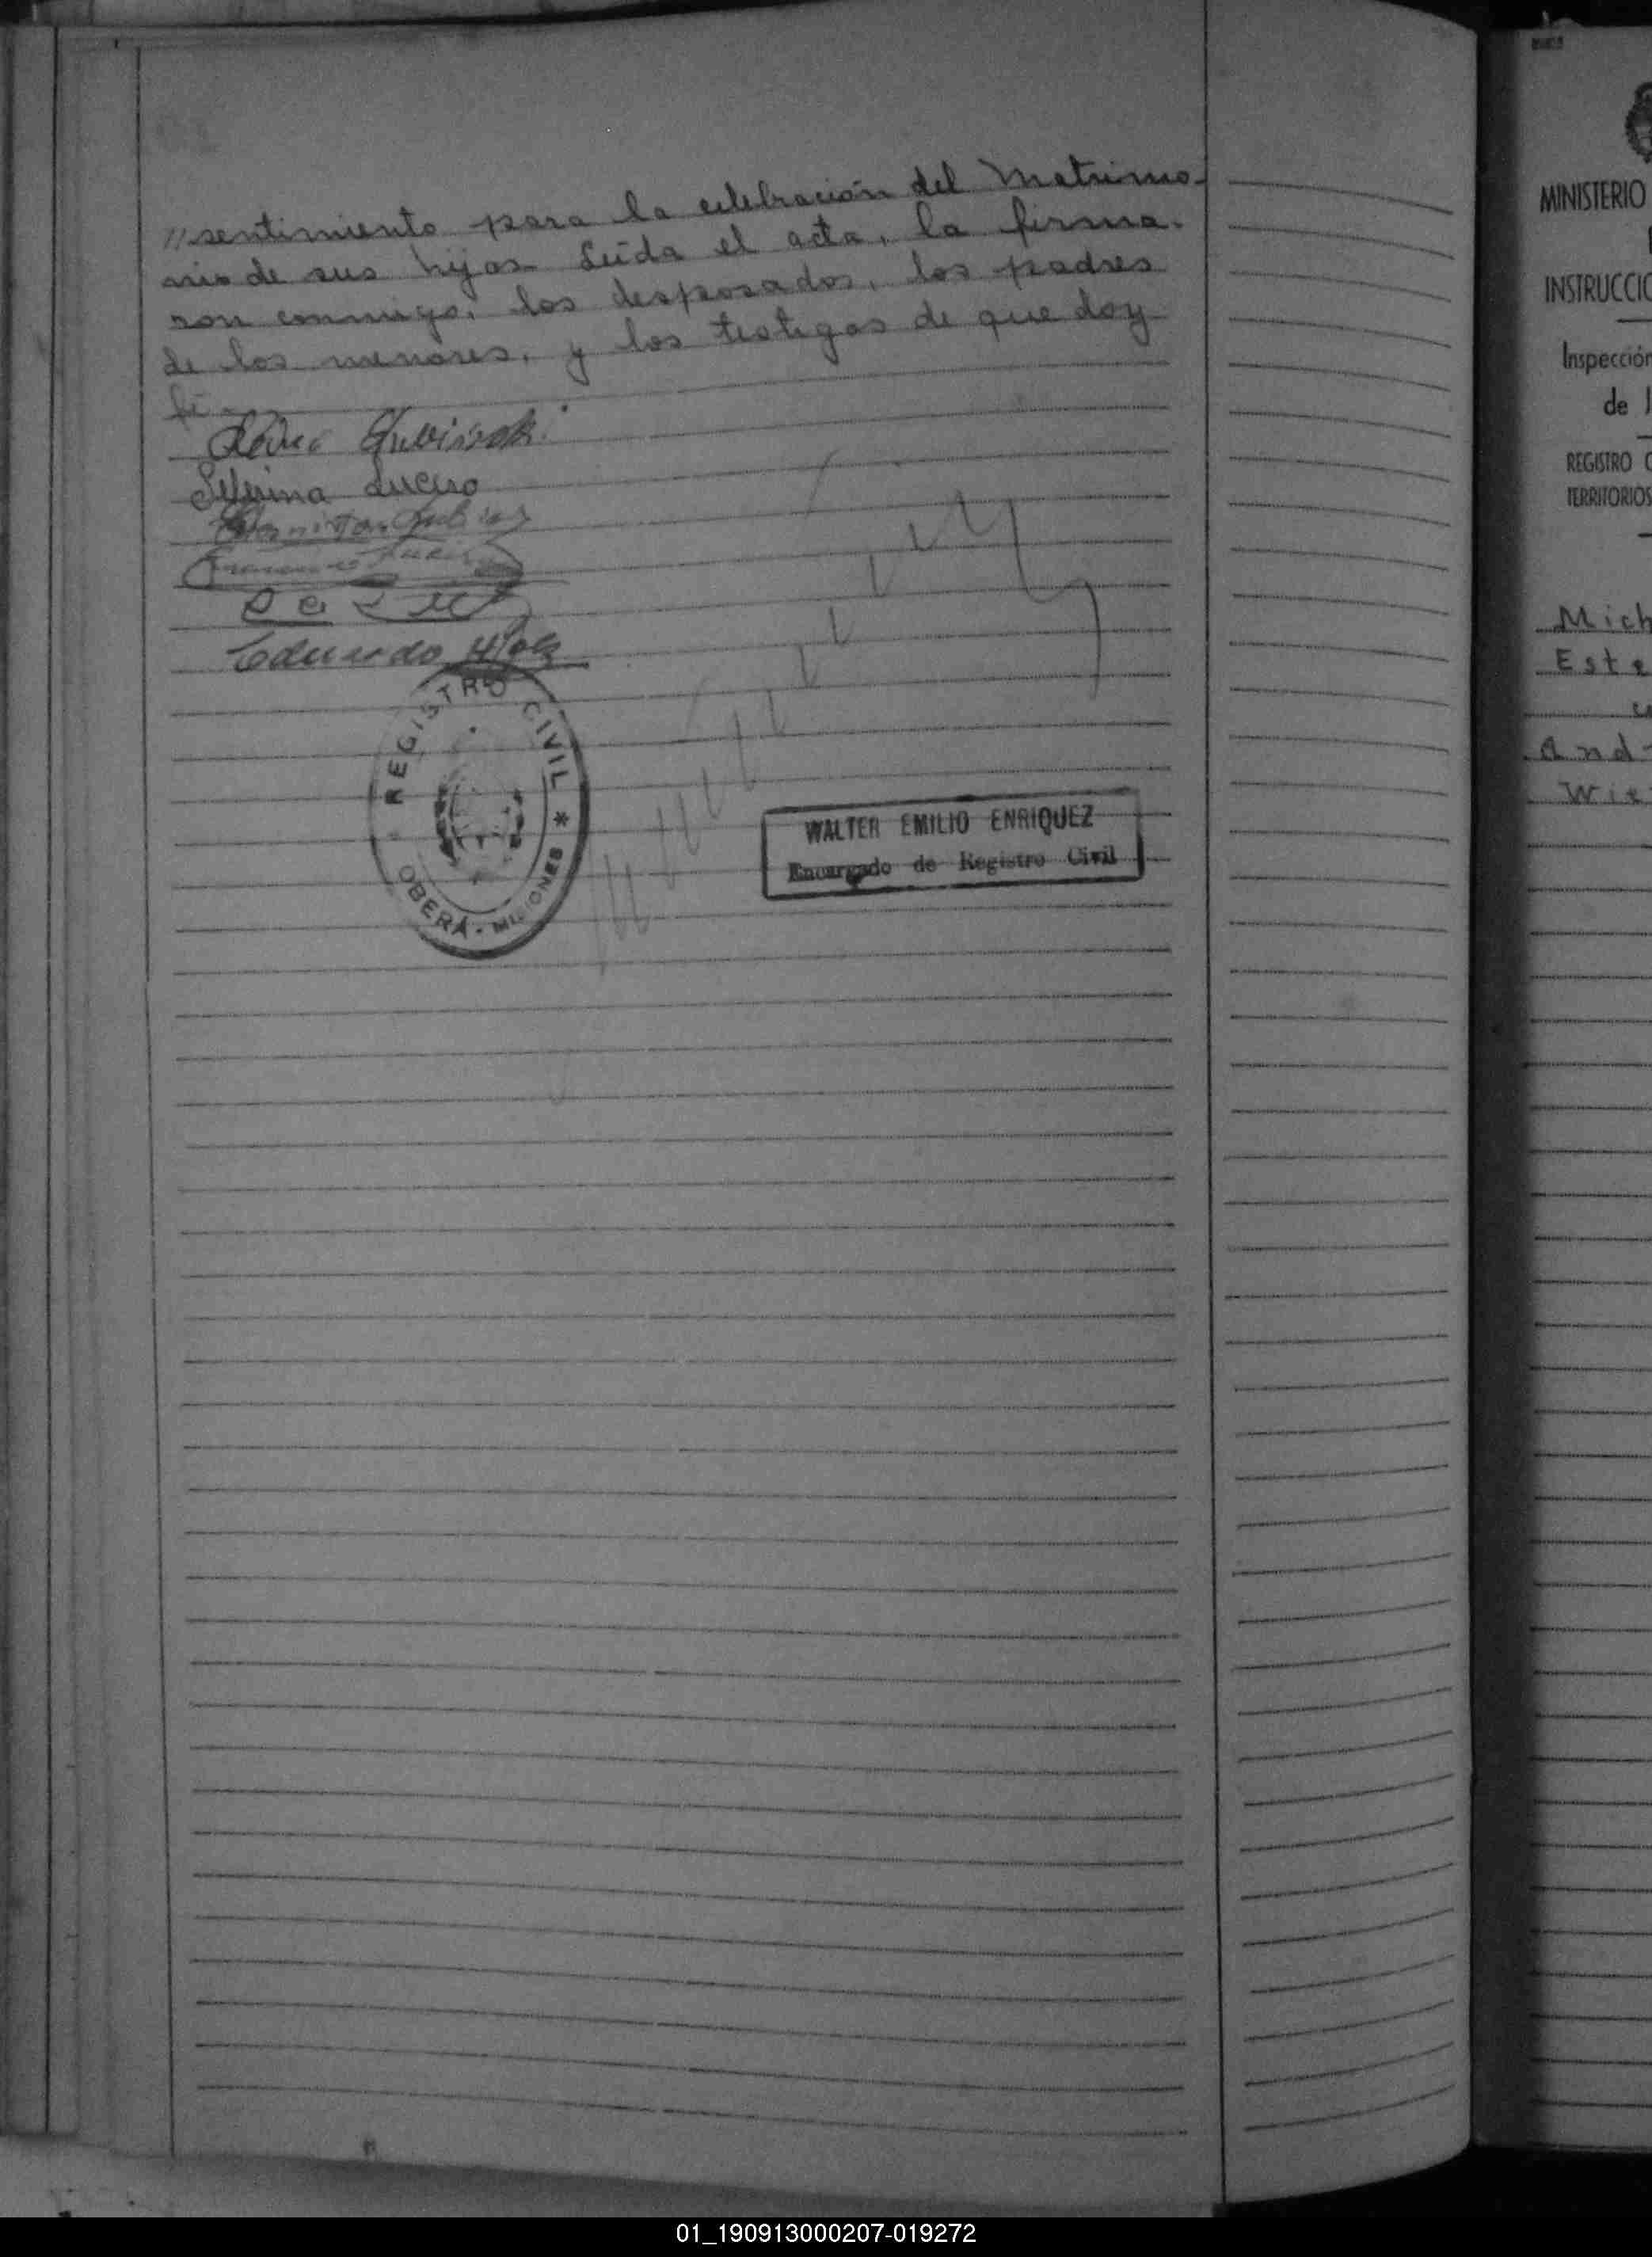 //sentimiento para la celebración del Matrimo-
nio de sus hijos. Leída el acta, la firma-
ron conmigo, los desposados, los padres
de los menores, y los testigos de que doy
fé.-
Seferina Lucero
Eduardo
REGISTRO CIVIL
OBERÁ - MISIONES *
WALTER EMILIO ENRIQUEZ
Encargado de Registro Civil
MINISTERIO
INSTRUCCIO
Inspección
de
REGISTRO
TERRITORIOS
Mich
Este
And
Wie
01_190913000207-019272